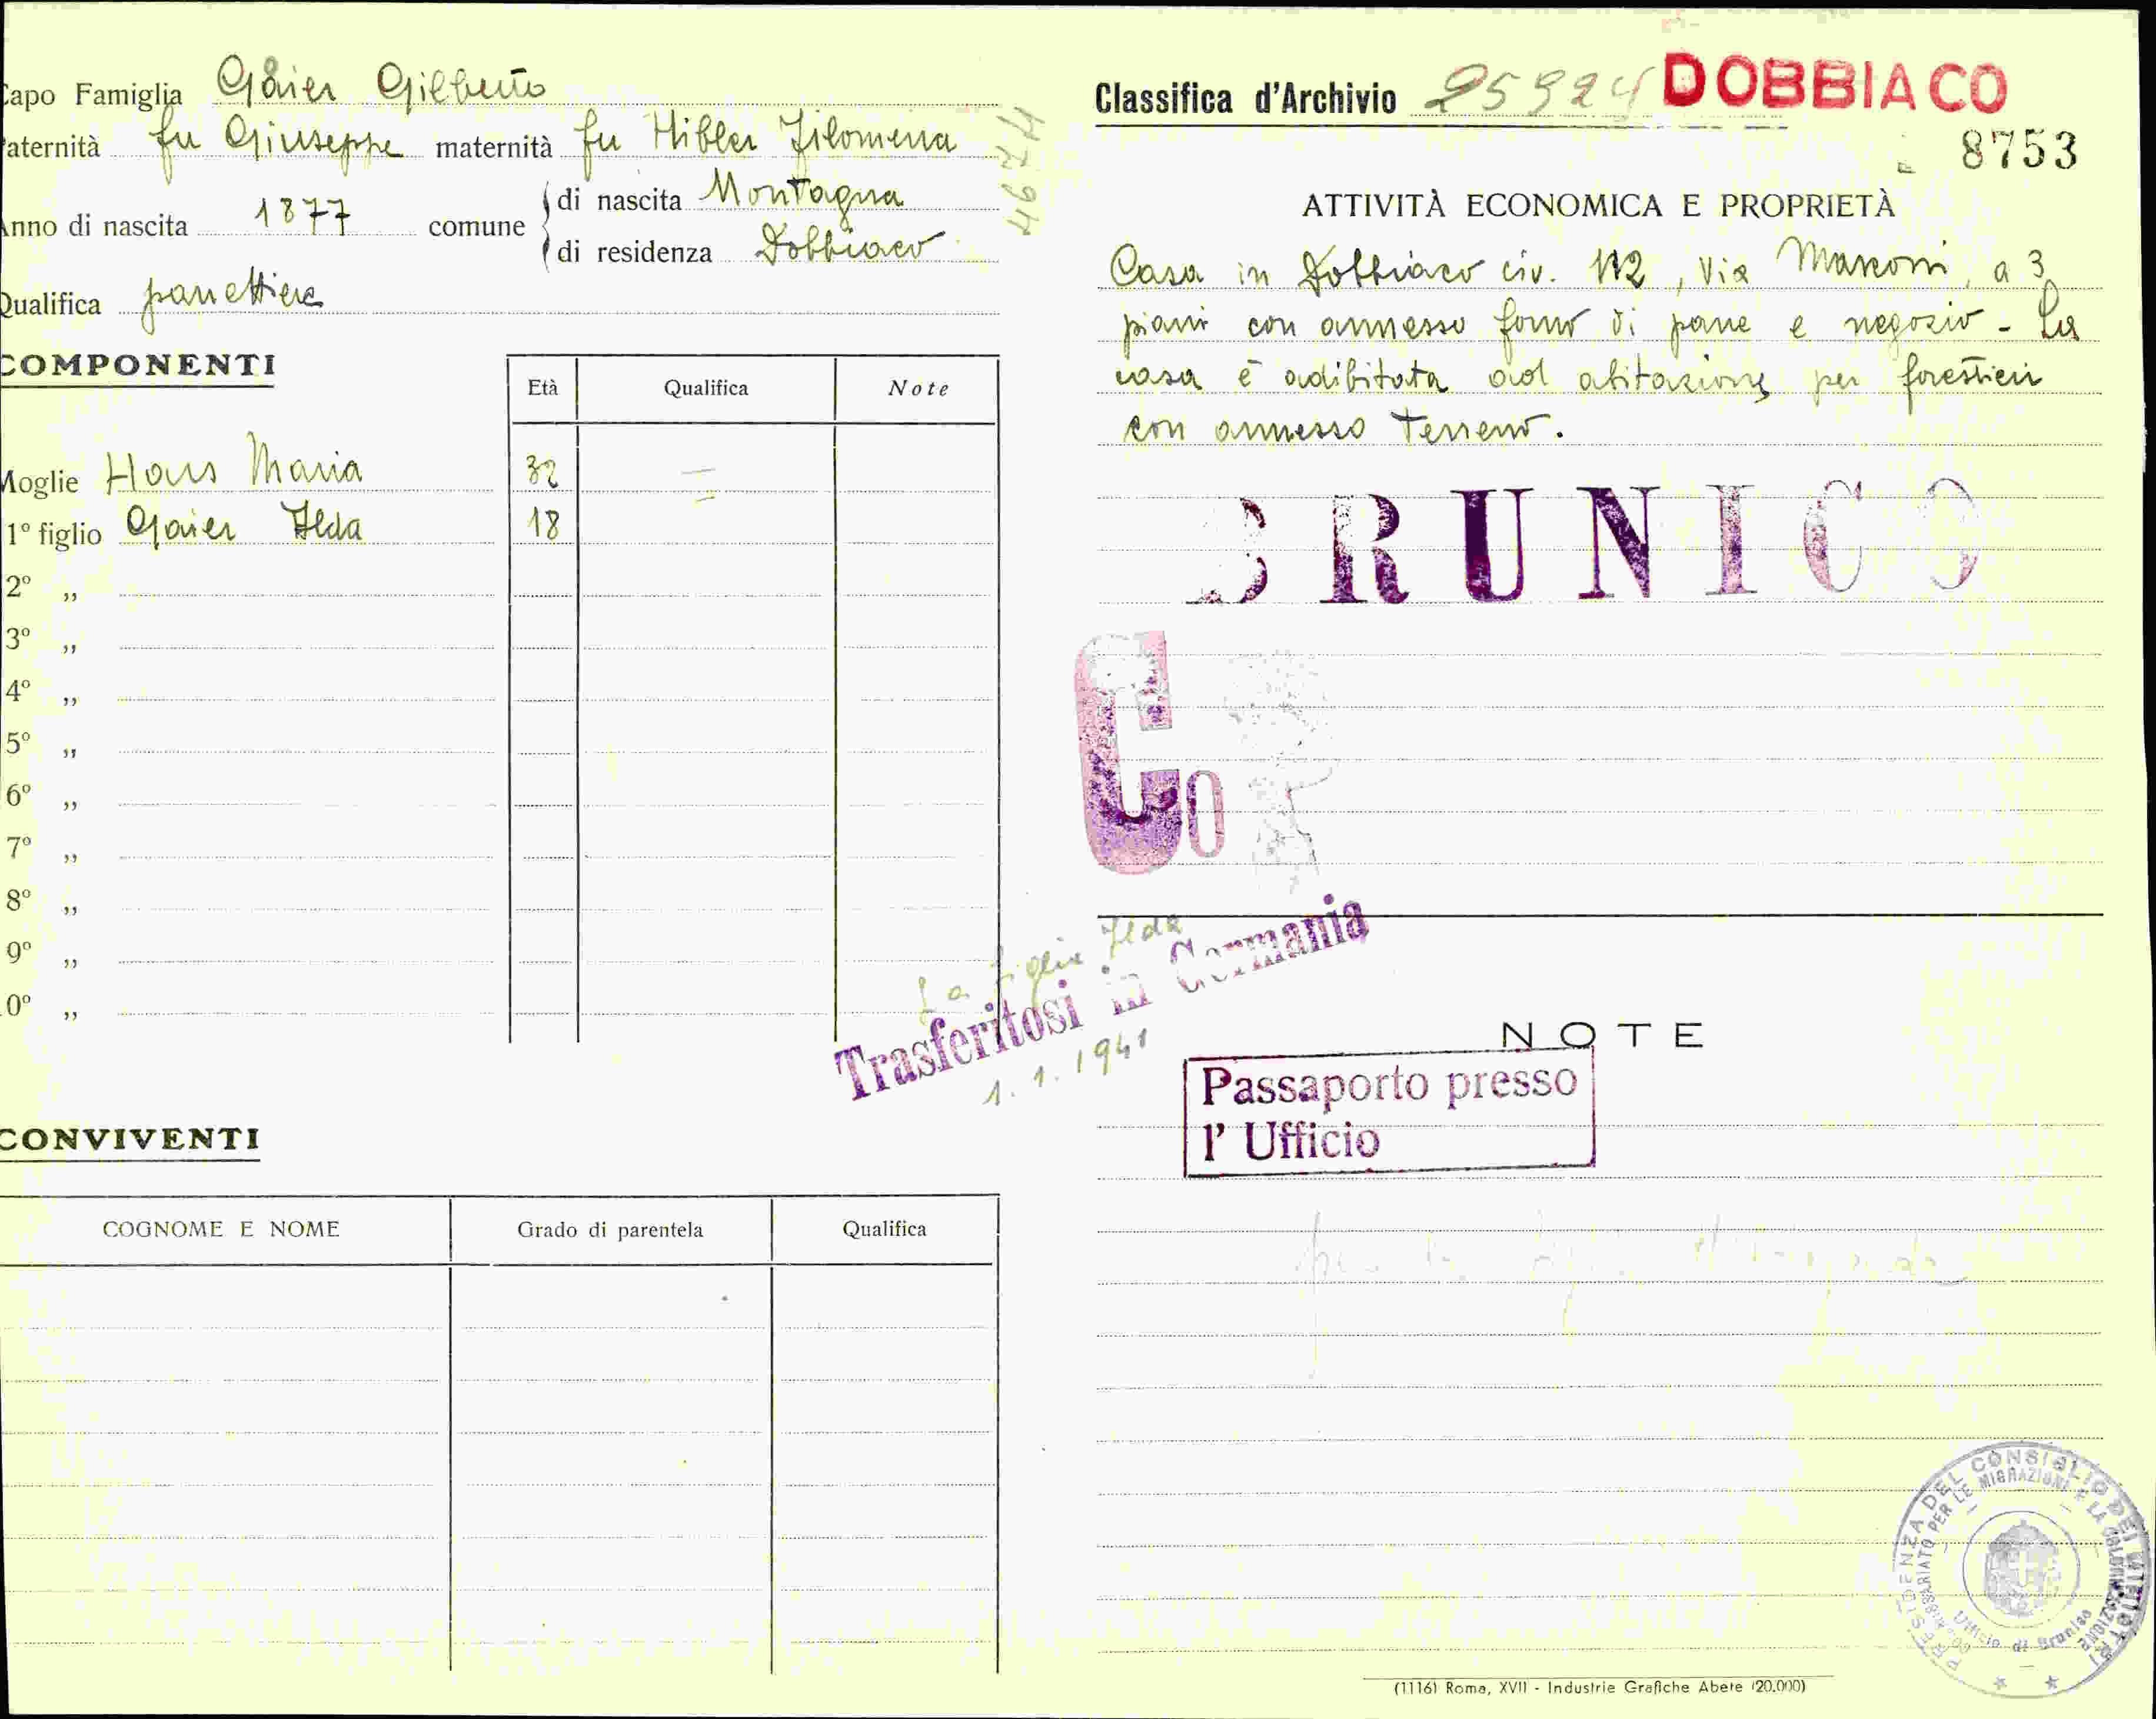 Capo Famiglia Gaier Gilberto
aternità fu Giuseppe maternità fu Hibler Filomena
Anno di nascita 1877 comune di nascita Montagna
di residenza Dobbiaco
Qualifica panettiere
46794
COMPONENTI
Età Qualifica Note
Moglie Haus Maria 32
1º figlio Gaier Ilda 18
2º „
3º „
4º „
5º „
6º „
7º „
8º „
9º „
0º „
La figlia Ilda
Trasferitosi in Germania
1.1.1941
CONVIVENTI
COGNOME E NOME Grado di parentela Qualifica
Classifica d'Archivio 25924 DOBBIACO
8753
ATTIVITÀ ECONOMICA E PROPRIETÀ
Casa in Dobbiaco civ. 112, Via Marconi, a 3
piani con annesso forno di pane e negozio - La
casa è adibitata ad abitazione per forestieri
con annesso terreno.
BRUNICO
Co
NOTE
Passaporto presso
l' Ufficio
PRESIDENZA DEL CONSIGLIO DEI MINISTRI
COMMISSARIATO PER LE MIGRAZIONI E LA COLONIZZAZIONE
Ufficio di Brunico
(1116) Roma, XVII - Industrie Grafiche Abete (20.000)